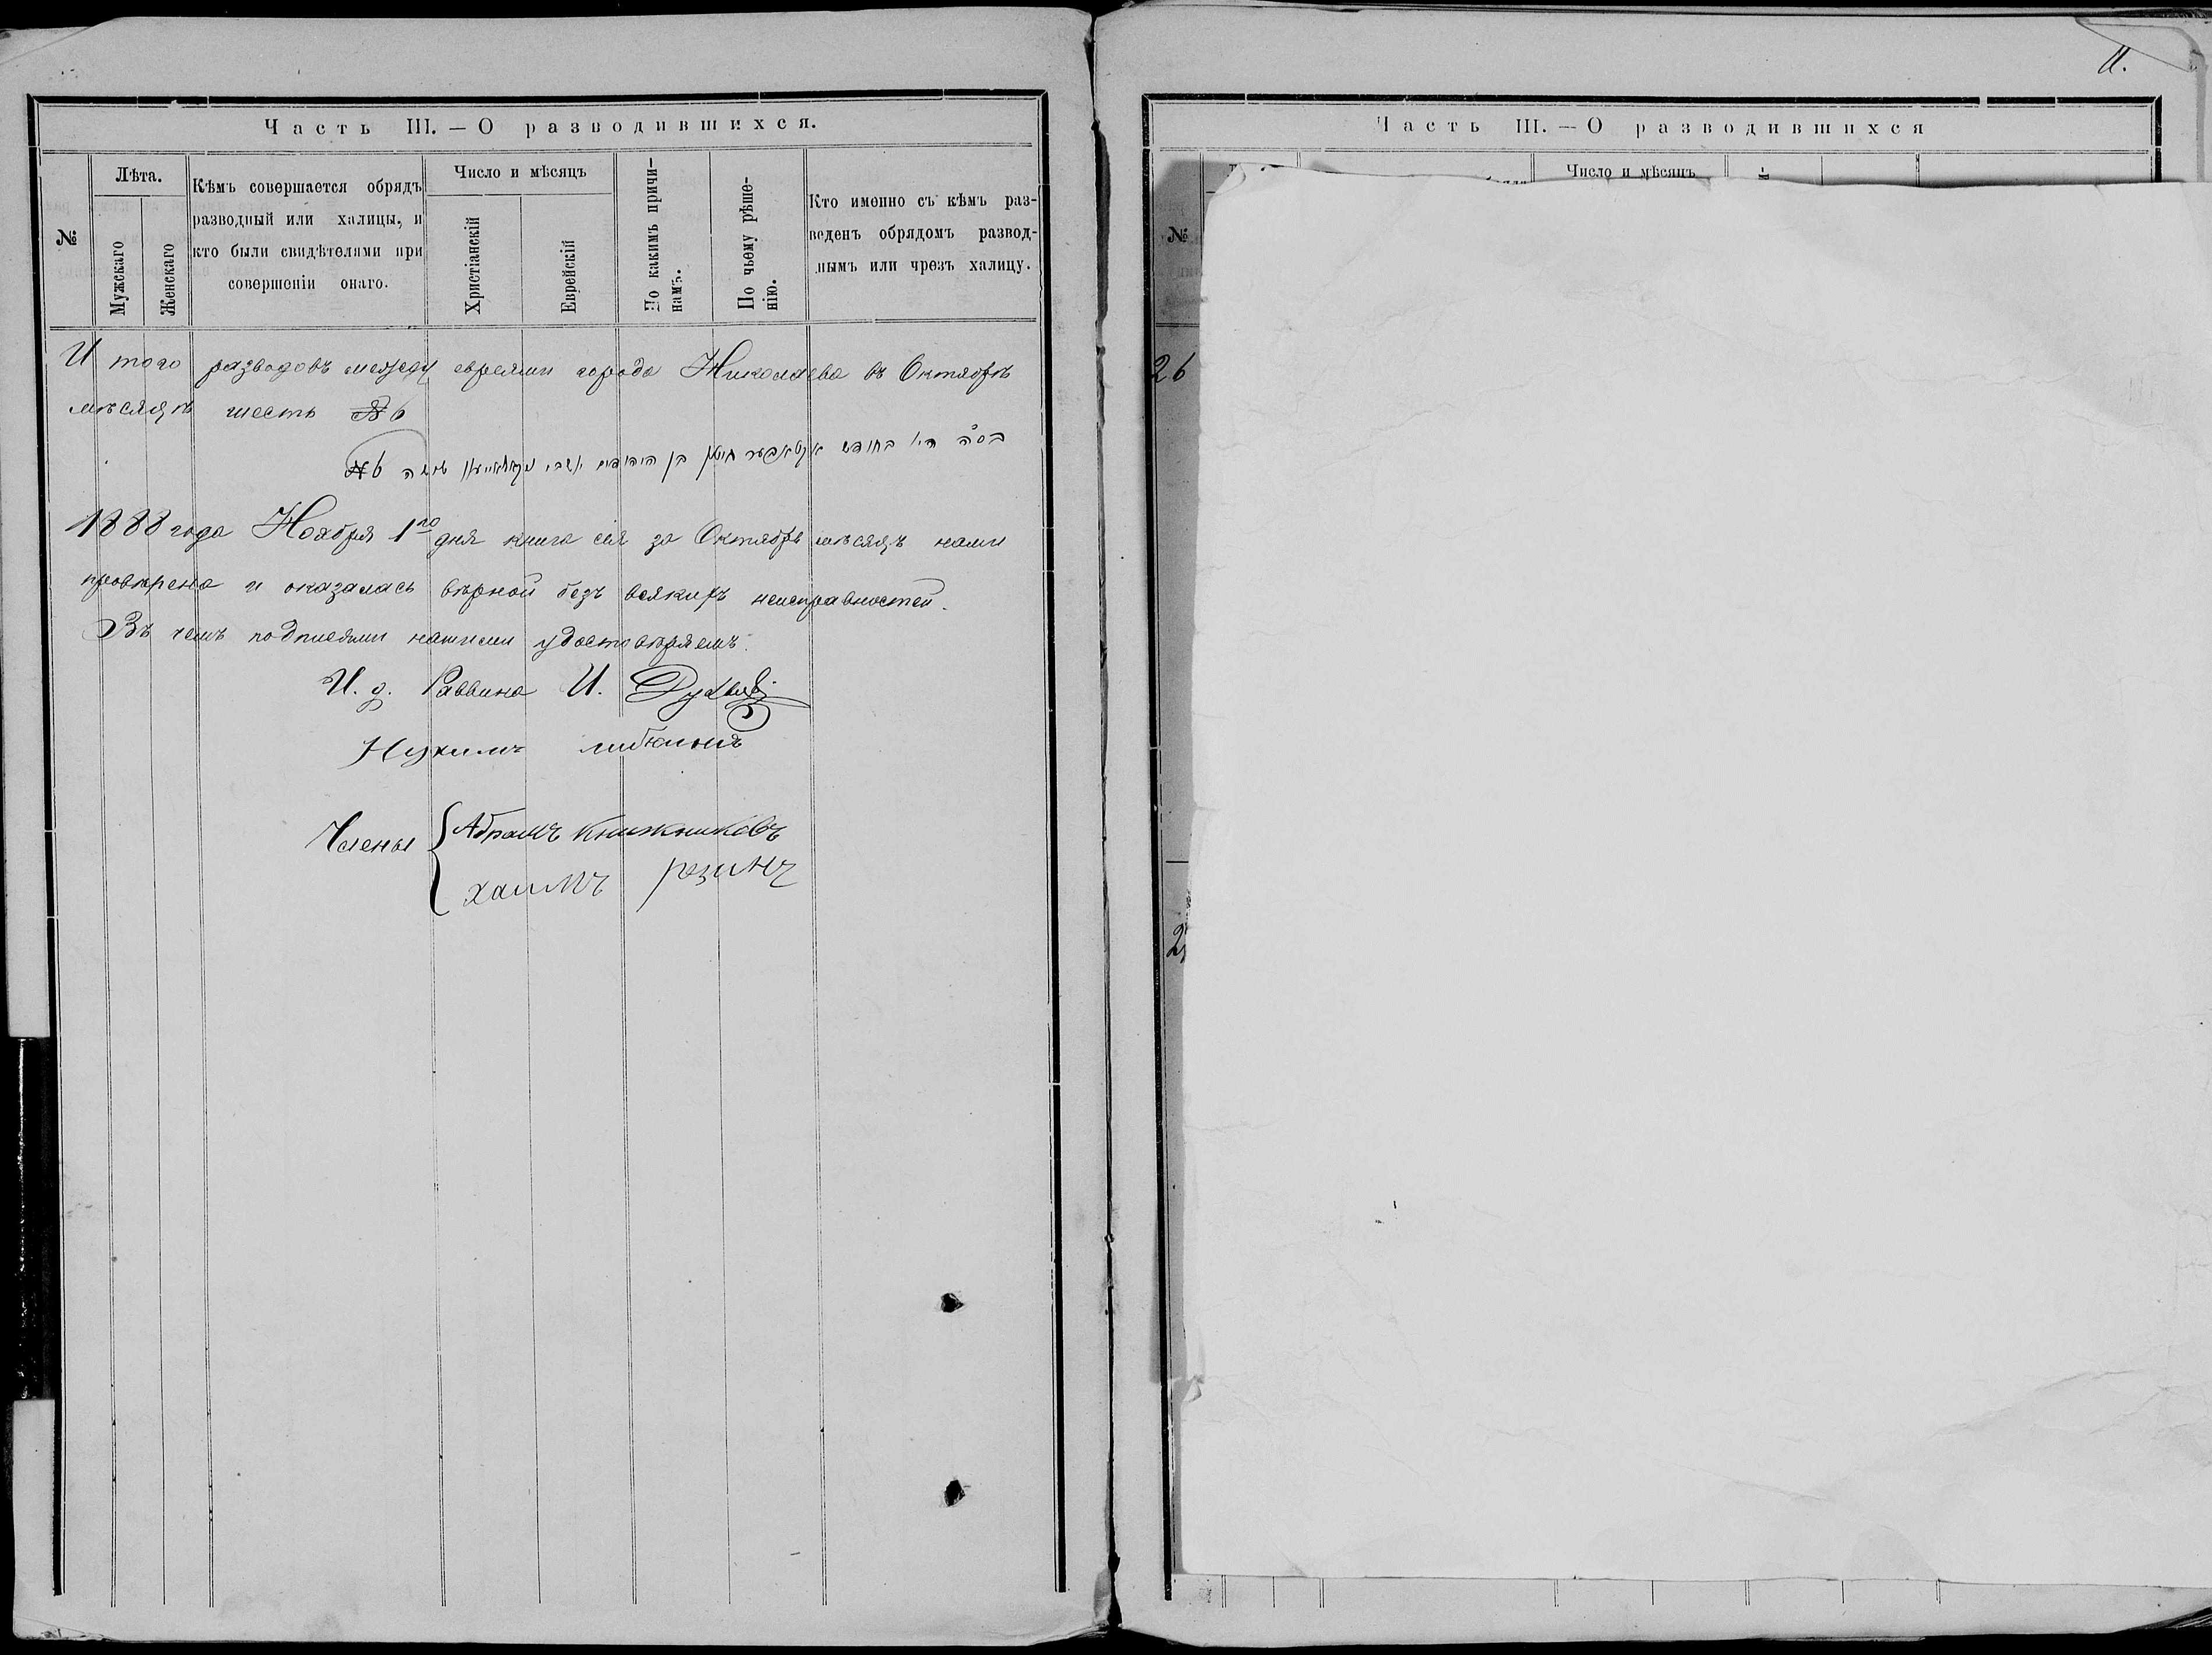 Часть III. — О разводившихся.
№
Лѣта.
Мужскаго
Женскаго
Кѣмъ совершается обрядъ
разводный или халицы, и
кто были свидѣтелями при
совершеніи онаго.
Число и мѣсяцъ
Христіанскій
Еврейскій
По какимъ причи-
намъ.
По чьему рѣше-
нію.
Кто именно съ кѣмъ раз-
веденъ обрядомъ развод-
нымъ или чрезъ халицу.
И того разводовъ между евреями города Николаева въ Октябрѣ
мѣсяцѣ шесть № 6
בחודש היהודים № 6
1888 года Ноября 1го дня книга сія за Октябрь мѣсяцъ нами
провѣрена и оказалась вѣрной безъ всякихъ неисправностей.
Въ чемъ подписями нашими удостовѣряемъ.
И. д. Раввина И.
Нухимъ
Члены
Абрамъ Книжниковъ
хаимъ резинъ
11.
Часть III. — О разводившихся
Число и мѣсяцъ
№
26